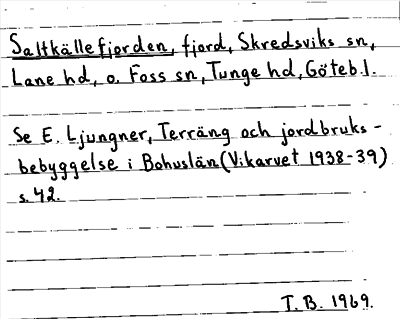 Saltkällefjorden, fjord, Skredsviks sn,
Lane hd, o. Foss sn, Tunge hd, Göteb.l.
Se E. Ljungner, Terräng och jordbruks-
bebyggelse i Bohuslän (Vikarvet 1938-39)
s. 42.
T. B. 1969.